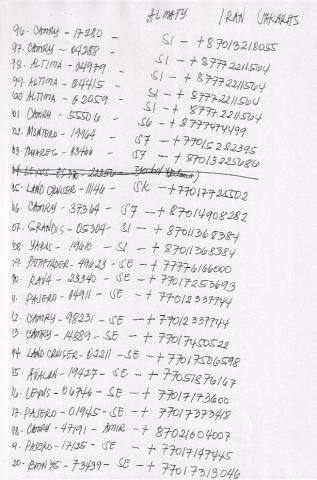 ALMATY IRAN SARAKHS
96. CAMRY - 17280 - SI - +87013218055
97. CAMRY - 04288 - SI - +87772211564
98. ALTIMA - 04979 - SI - +87772211564
99. ALTIMA - 04415 - SI - +87772211564
100 ALTIMA - 02059 - SI - +87772211564
01. CAMRY - 55506 - S6 - +8777474499
02. MONTERO - 19964 - S7 - +77015282395
03. TUAREG - 03466 - S7 - +87013225686
04 -
05. LAND CRUISER - 11146 - SK - +77017725502
06. CAMRY - 37364 - S7 - +87014908282
07. GRANDIS - 05304 - SI - +87011368384
08. YARIS - 19610 - SI - +87011368384
09. PATHFINDER - 49623 - SE - +77776166000
10. RAV4 - 23340 - SE - +77017253693
11. PAJERO - 04911 - SE - +77012337744
12. CAMRY - 98231 - SE - +77012337744
13. CAMRY - 14889 - SE - +77017450522
14 LAND CRUISER - 02211 - SE - +77017506598
15 AVALON - 19427 - SE - +77051876167
16. LEXUS - 06746 - SE - +77017173600
17. PAJERO - 01945 - SE - +77017373418
18. CAMRY - 47191 - AMIR - +87021604007
19. PAJERO - 17125 - SE - +77017147445
20. BMW X5 - 73439 - SE - +77017313046